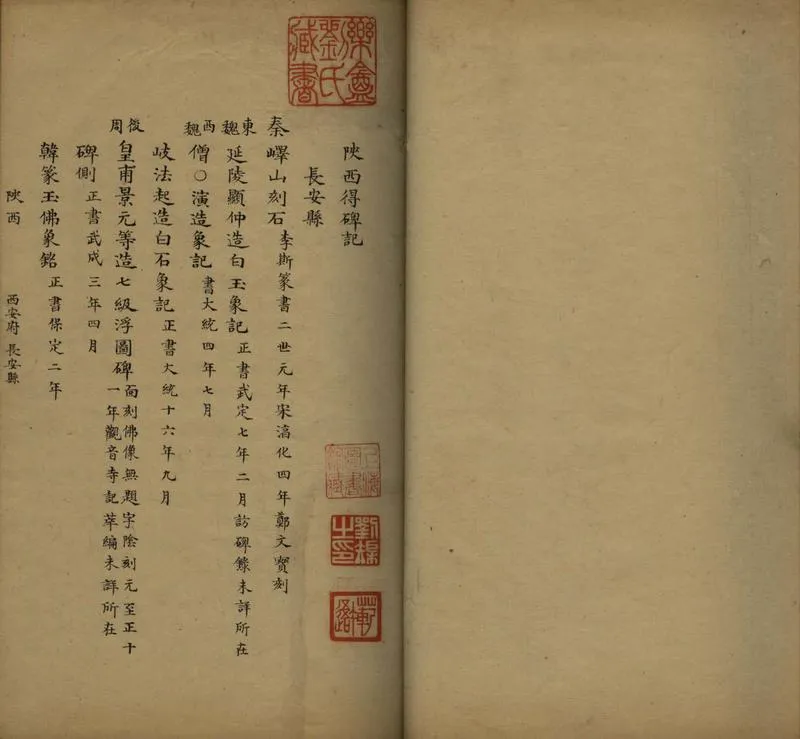 陝西得碑記
長安縣
秦 嶧山刻石 李斯篆書二世元年宋淳化四年鄭文寶刻
東魏 延陵顯仲造白玉象記 正書武定七年二月訪碑錄未詳所在
西魏 僧○演造象記 書大統四年七月
岐法起造白石象記 正書大統十六年九月
後周 皇甫景元等造七級浮圖碑 面刻佛像無題字陰刻元至正十一年觀音寺記萃編未詳所在
碑側 正書武成三年四月
韓篆玉佛象銘 正書保定二年
陝西 西安府 長安縣
劉氏藏書